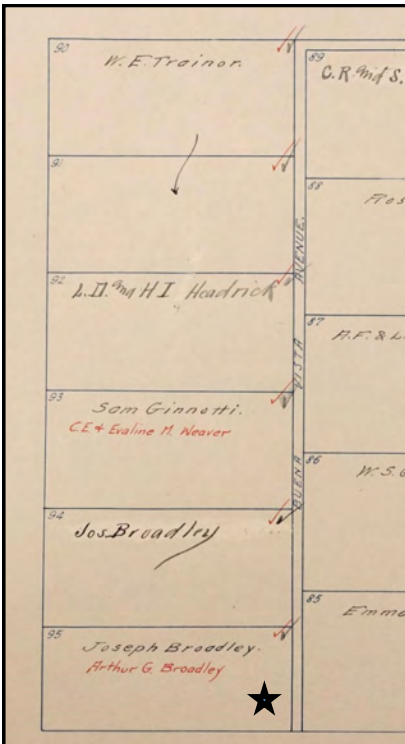 90
W.E. Trainor.
91
92
L.D. and H I Headrick
93
Sam Ginnotti.
C.E & Evaline M. Weaver
94
Jos. Broadley
95
Joseph Broadley.
Arthur G. Broadley
BUENA VISTA AVENUE.
89
C.R. and S.
88
87
A.F. &
86
W.S.
85